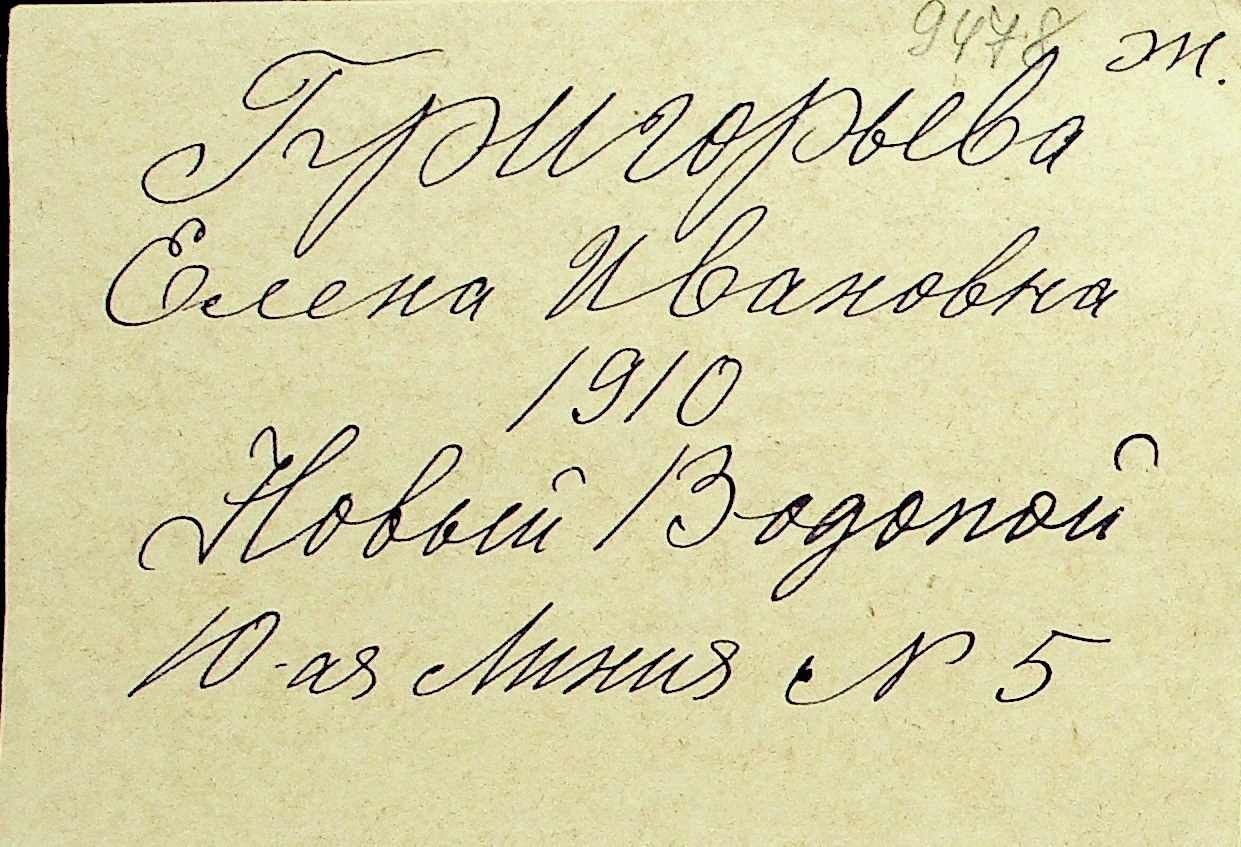 9478 ж.
Григорьева
Елена Ивановна
1910
Новый Водопой
10-ая Линия N 5